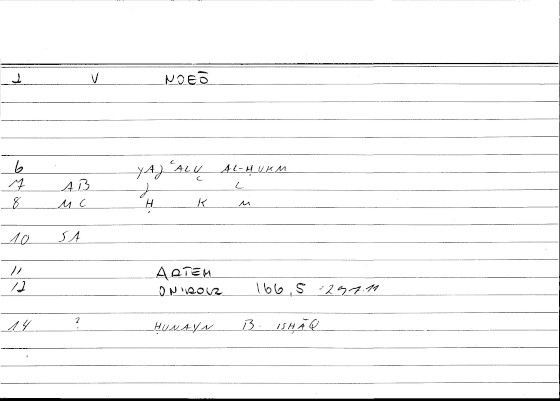 1 V NOEŌ
6 YAJ ʿALU AL-ḤUKM
7 AB J ʿ L
8 MC Ḥ K M
10 SA
11 ARTEM
12 166,5
14 ? ḤUNAYN B. ISḤĀQ